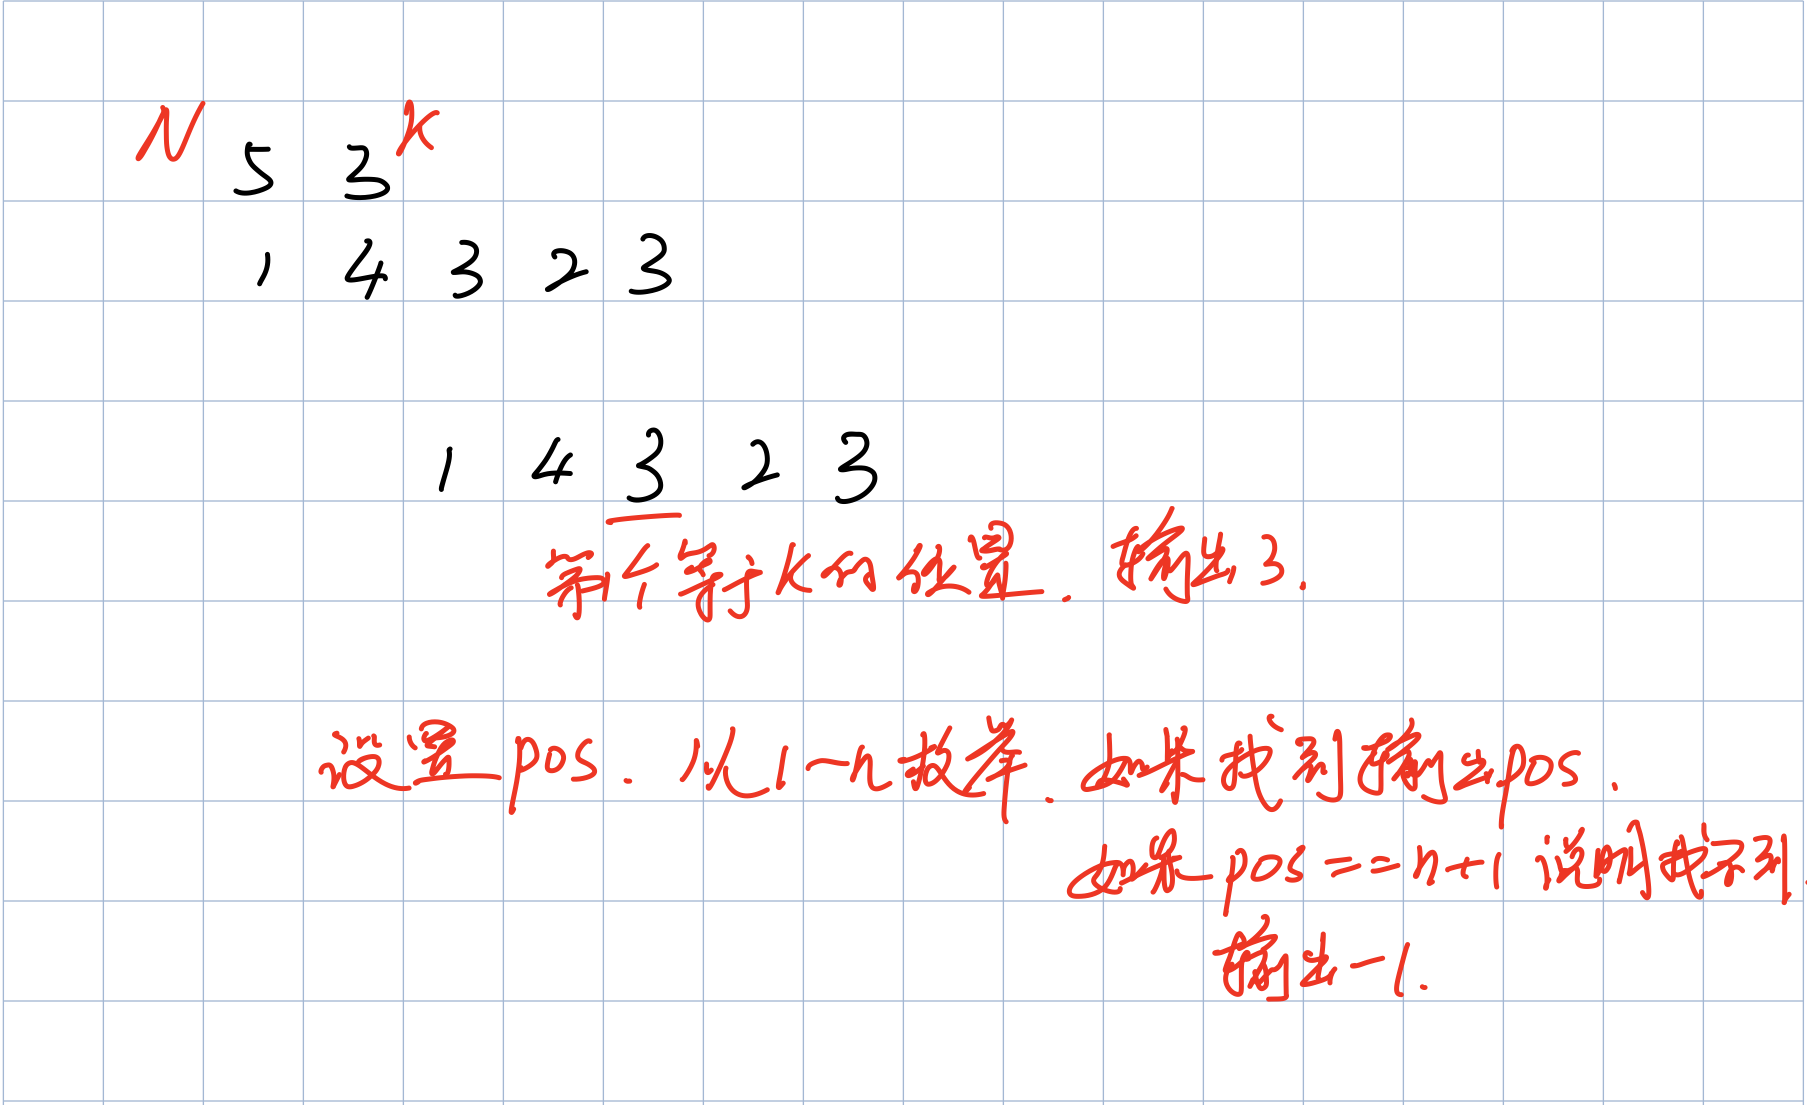 N 5 3 K
1 4 3 2 3
1 4 3 2 3
第1个等于K的位置. 输出3.
设置pos. 从1~n枚举. 如果找到输出pos.
如果pos==n+1说明找不到.
输出-1.